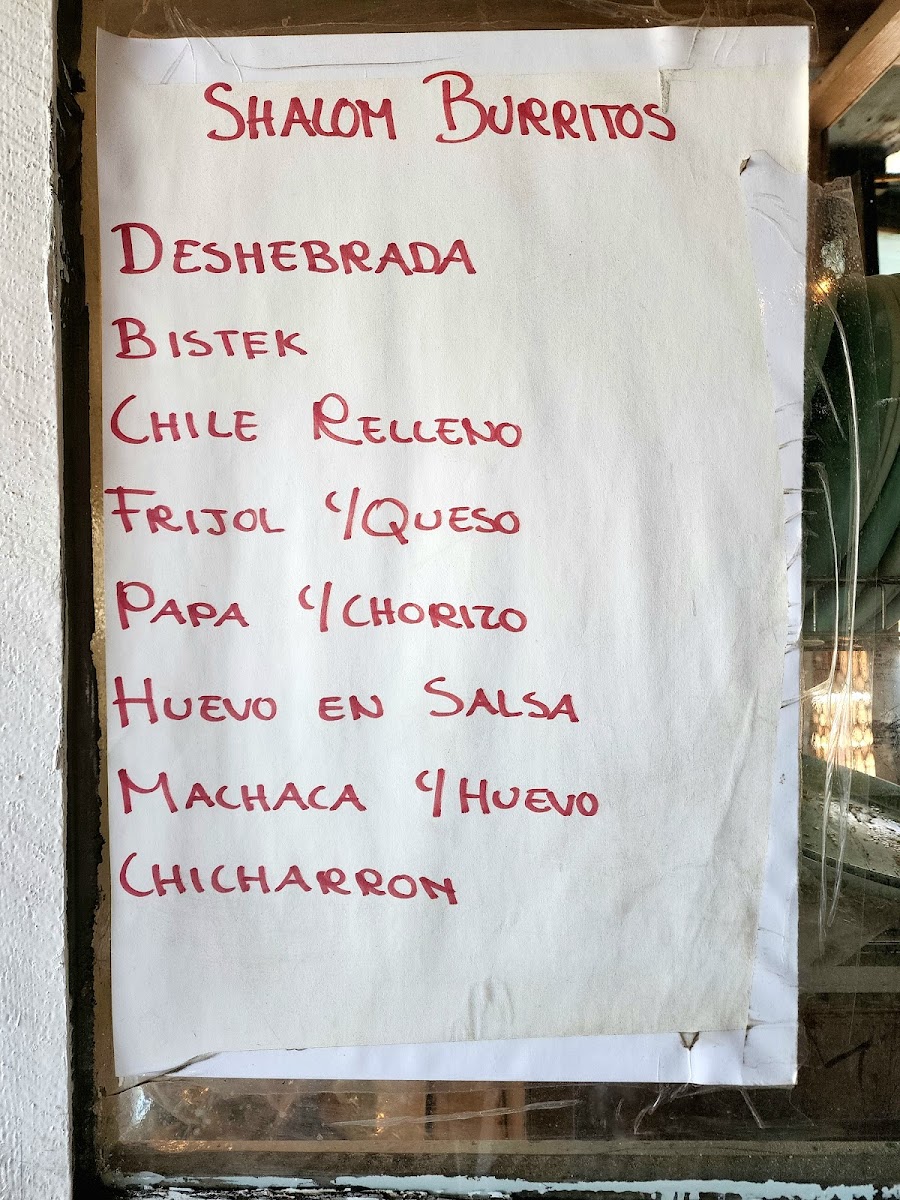 SHALOM BURRITOS
DESHEBRADA
BISTEK
CHILE RELLENO
FRIJOL c/QUESO
PAPA c/CHORIZO
HUEVO EN SALSA
MACHACA c/HUEVO
CHICHARRON